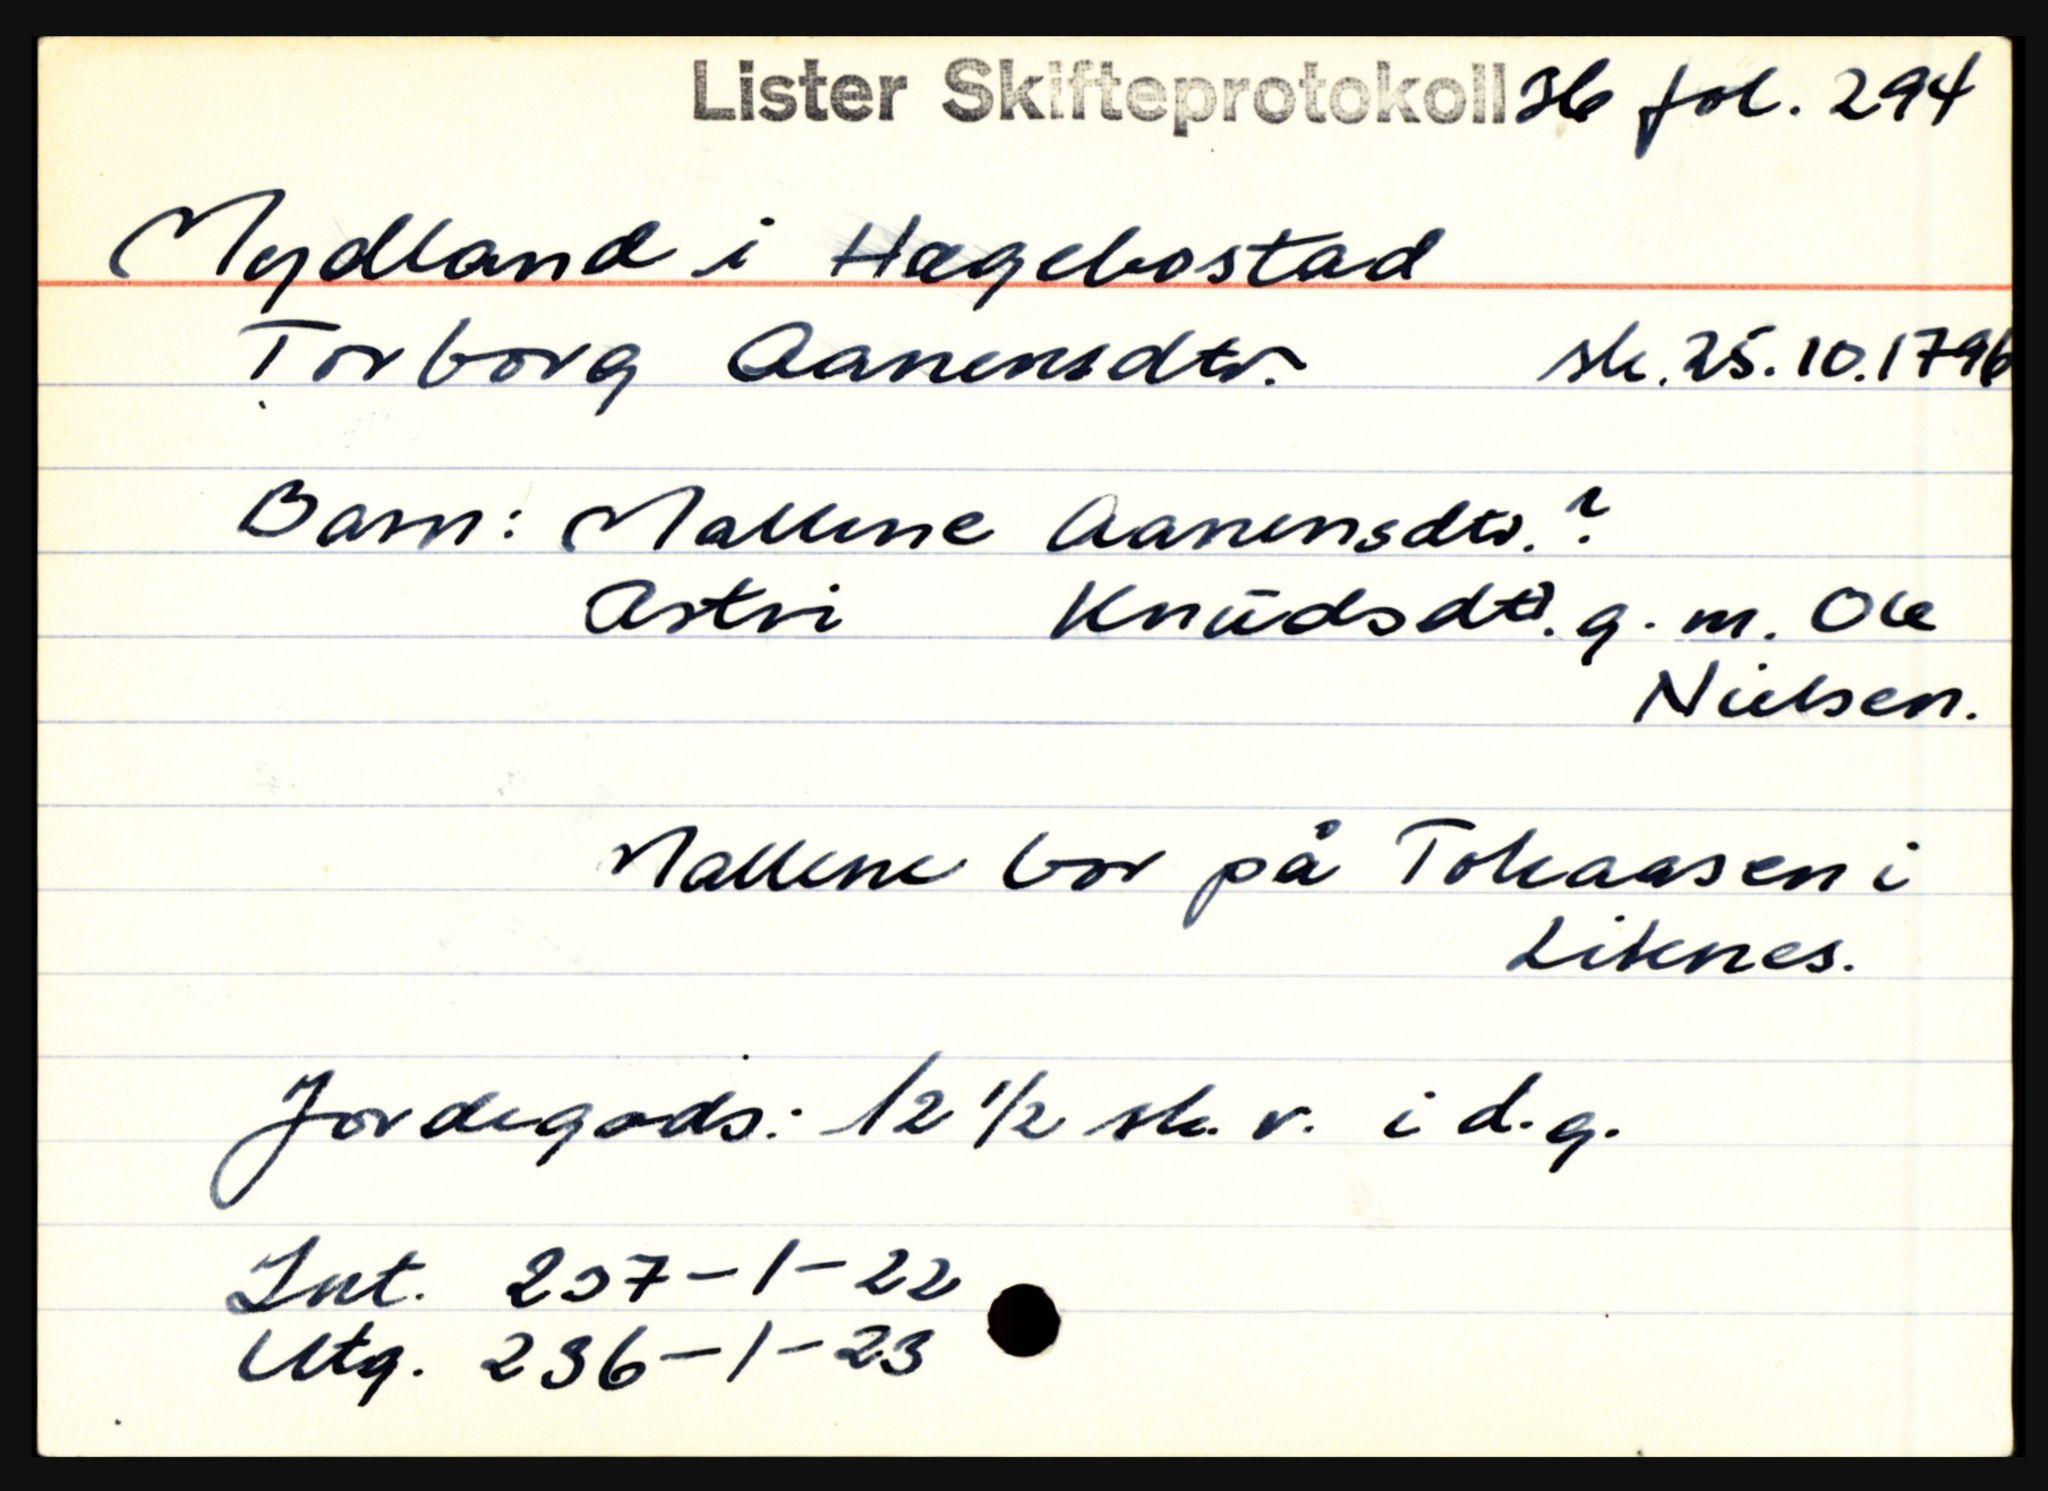 Lister Skifteprotokoll 36 fol. 294
Mydland i Hægebostad
Torborg Aanensdtr. sk. 25.10.1796
Barn: Mallene Aanensdtr. ?
Astri Knūdsdtr. g. m. Ole
Nielsen.
Mallene bor på Tokaasen i
Liknes.
Jordegods: 12 1/2 sk. r. i d. g.
Int. 237-1-22
Utg. 236-1-23